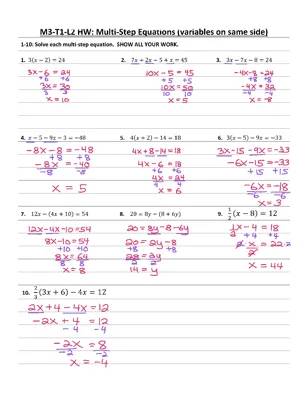 M3-T1-L2 HW: Multi-Step Equations (variables on same side)
1-10: Solve each multi-step equation. SHOW ALL YOUR WORK.
1. 3(x − 2) = 24
3x - 6 = 24
+6 +6
3x = 30
3 3
x = 10
2. 7x + 2x − 5 + x = 45
10x - 5 = 45
+5 +5
10x = 50
10 10
x = 5
3. 3x − 7x − 8 = 24
-4x - 8 = 24
+8 +8
-4x = 32
-4 -4
x = -8
4. x − 5 − 9x − 3 = −48
-8x - 8 = -48
+8 +8
-8x = -40
-8 -8
x = 5
5. 4(x + 2) − 14 = 18
4x + 8 - 14 = 18
4x - 6 = 18
+6 +6
4x = 24
4 4
x = 6
6. 3(x − 5) − 9x = −33
3x - 15 - 9x = -33
-6x - 15 = -33
+15 +15
-6x = -18
-6 -6
x = 3
7. 12x − (4x + 10) = 54
12x - 4x - 10 = 54
8x - 10 = 54
+10 +10
8x = 64
8 8
x = 8
8. 20 = 8y − (8 + 6y)
20 = 8y - 8 - 6y
20 = 2y - 8
+8 +8
28 = 2y
2 2
14 = y
9. 1/2 (x − 8) = 12
1/2 x - 4 = 18
+4 +4
x = 22
x = 44
10. 2/3 (3x + 6) − 4x = 12
2x + 4 - 4x = 12
-2x + 4 = 12
-4 -4
-2x = 8
-2 -2
x = -4